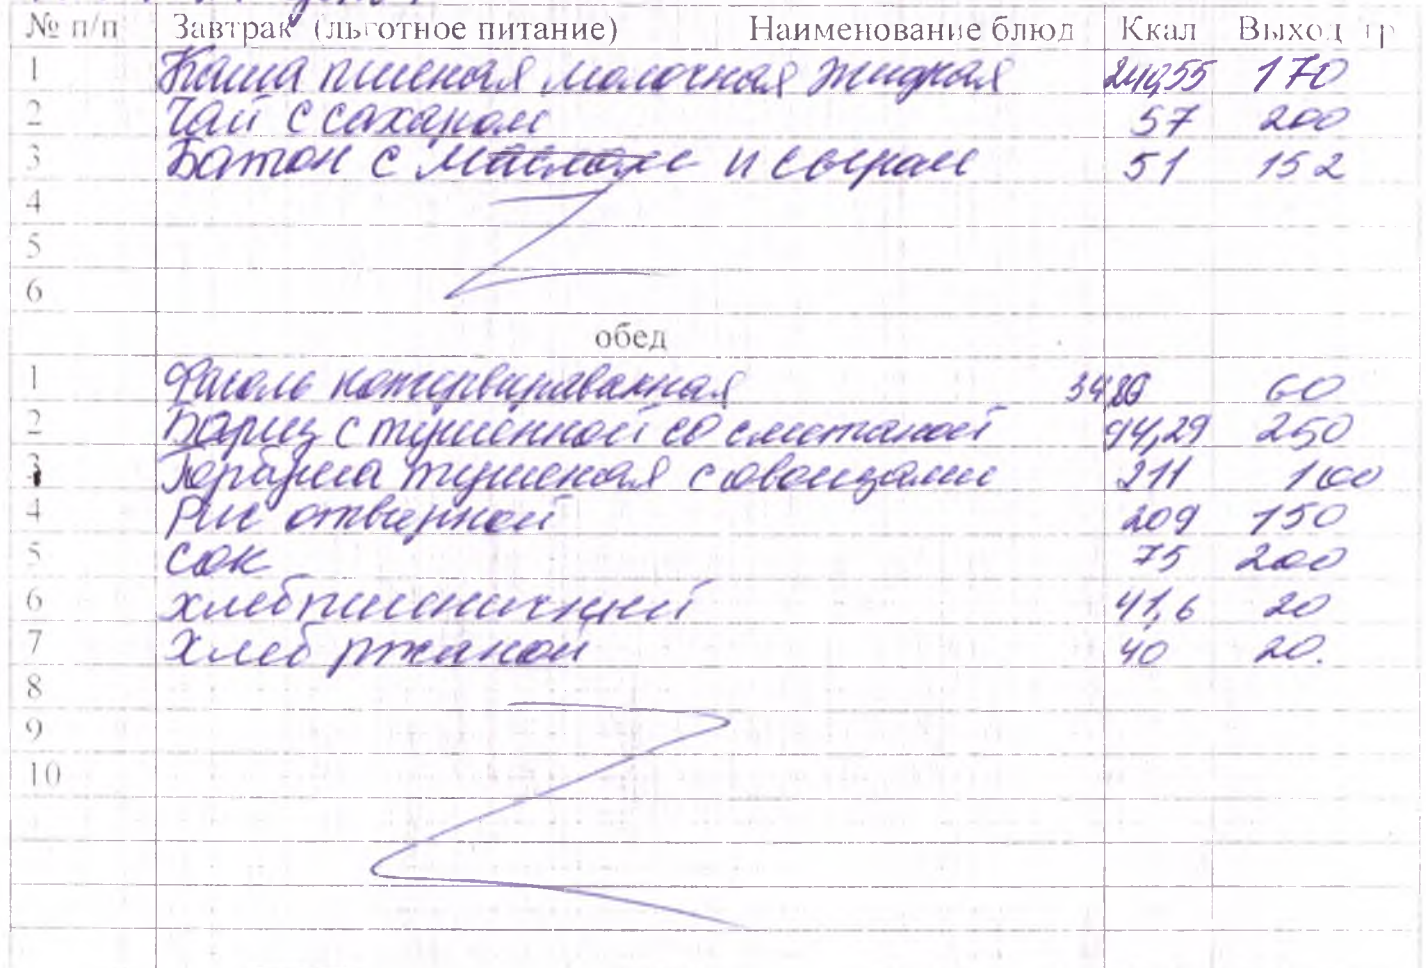 № п/п Завтрак (льготное питание) Наименование блюд Ккал Выход гр
1 Каша пшеная молочная жидкая 170
2 Чай с сахаром 57 200
3 Батон с маслом и сыром 51 152
4
5
6
обед
1 Фасоль консервированная 60
2 Борщ с тушенкой со сметаной 94,29 250
3 тушеная с овощами 211 100
4 Рис отварной 209 150
5 Сок 75 200
6 хлеб пшеничный 41,6 20
7 Хлеб ржаной 40 20.
8
9
10